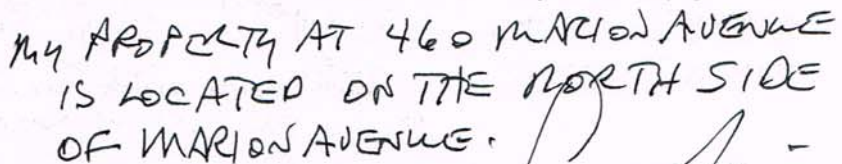 MY PROPERTY AT 460 MARION AVENUE
IS LOCATED ON THE NORTH SIDE
OF MARION AVENUE.